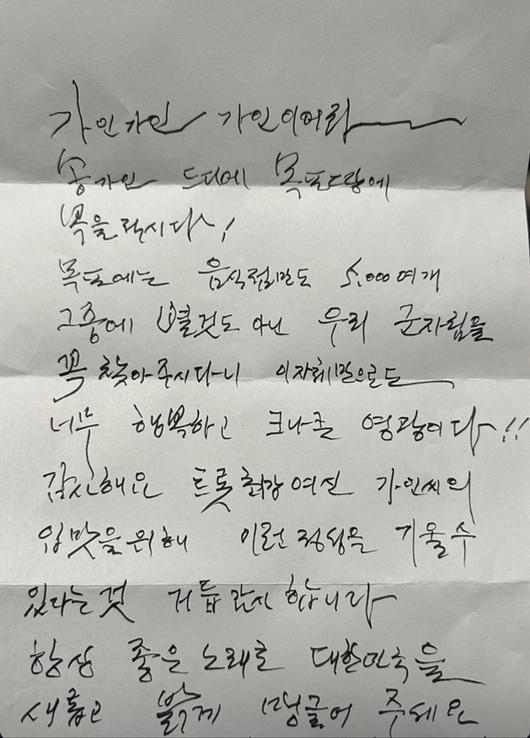 가인가인 가인이어라
송가인 드디어 목포다방에
목을 축시다!
목포에는 음식점만도 5,000여개
그중에 별것도 아닌 우리 군자림을
꼭 찾아주시다니 이자체만으로도
너무 행복하고 크나큰 영광이다!!
감사해요 트롯 최강 여신 가인씨의
입맛을 위해 이런 정성을 기울 수
있다는것 거듭 감사 합니다
항상 좋은 노래로 대한민국을
새롭고 밝게 만들어 주세요